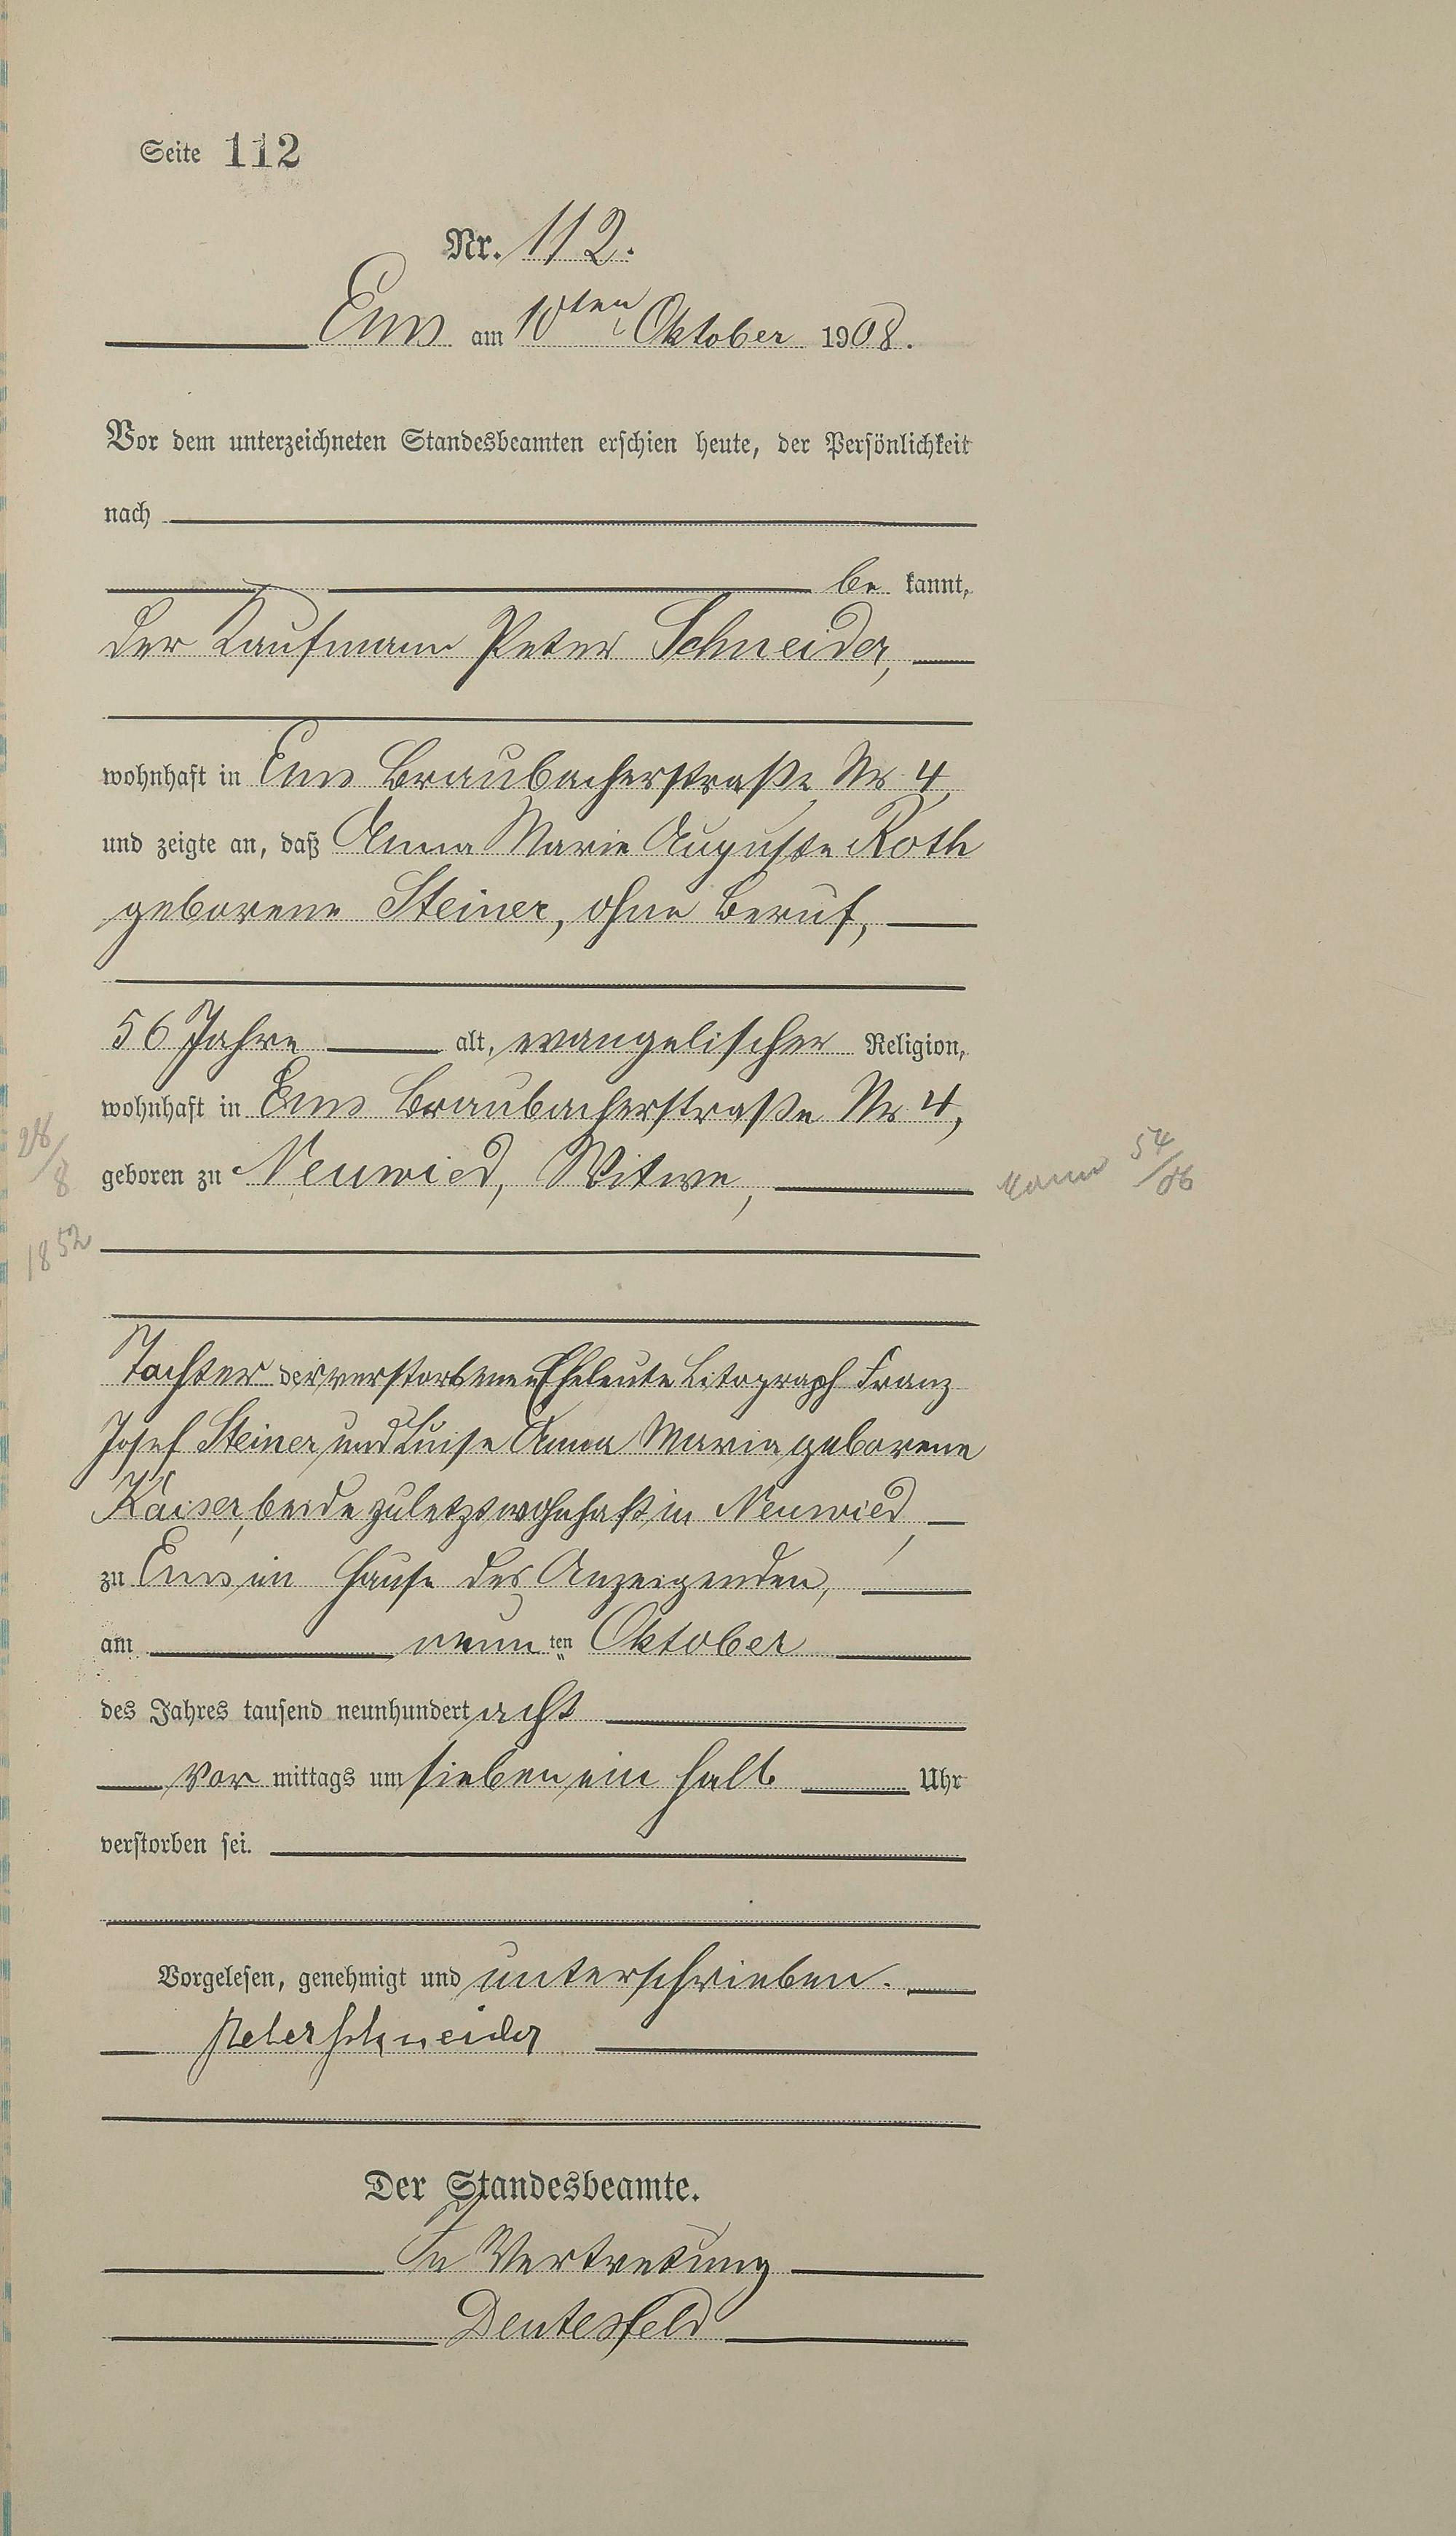 Seite 112
Nr. 112.
Ems am 10ten Oktober 1908.
Vor dem unterzeichneten Standesbeamten erschien heute, der Persönlichkeit
nach
be kannt,
der Kaufmann Peter Schneider,
wohnhaft in Ems Braubacherstraße Nr. 4,
und zeigte an, daß Anna Marie Auguste Roth
geborene Steiner, ohne Beruf,
56 Jahre alt, evangelischer Religion,
wohnhaft in Ems Braubacherstraße Nr. 4,
28/8 geboren zu Neuwied, Witwe, Mann 54/06
1852
Tochter der verstorbenen Eheleute Litograph Franz
Josef Steiner und Luise Anna Maria geborene
Kaiser, beide zuletzt wohnhaft in Neuwied,
zu Ems im Hause des Anzeigenden,
am neun ten Oktober
des Jahres tausend neunhundert acht
Vor mittags um sieben ein halb Uhr
verstorben sei.
Vorgelesen, genehmigt und unterschrieben.
Peter Schneider
Der Standesbeamte.
In Vertretung